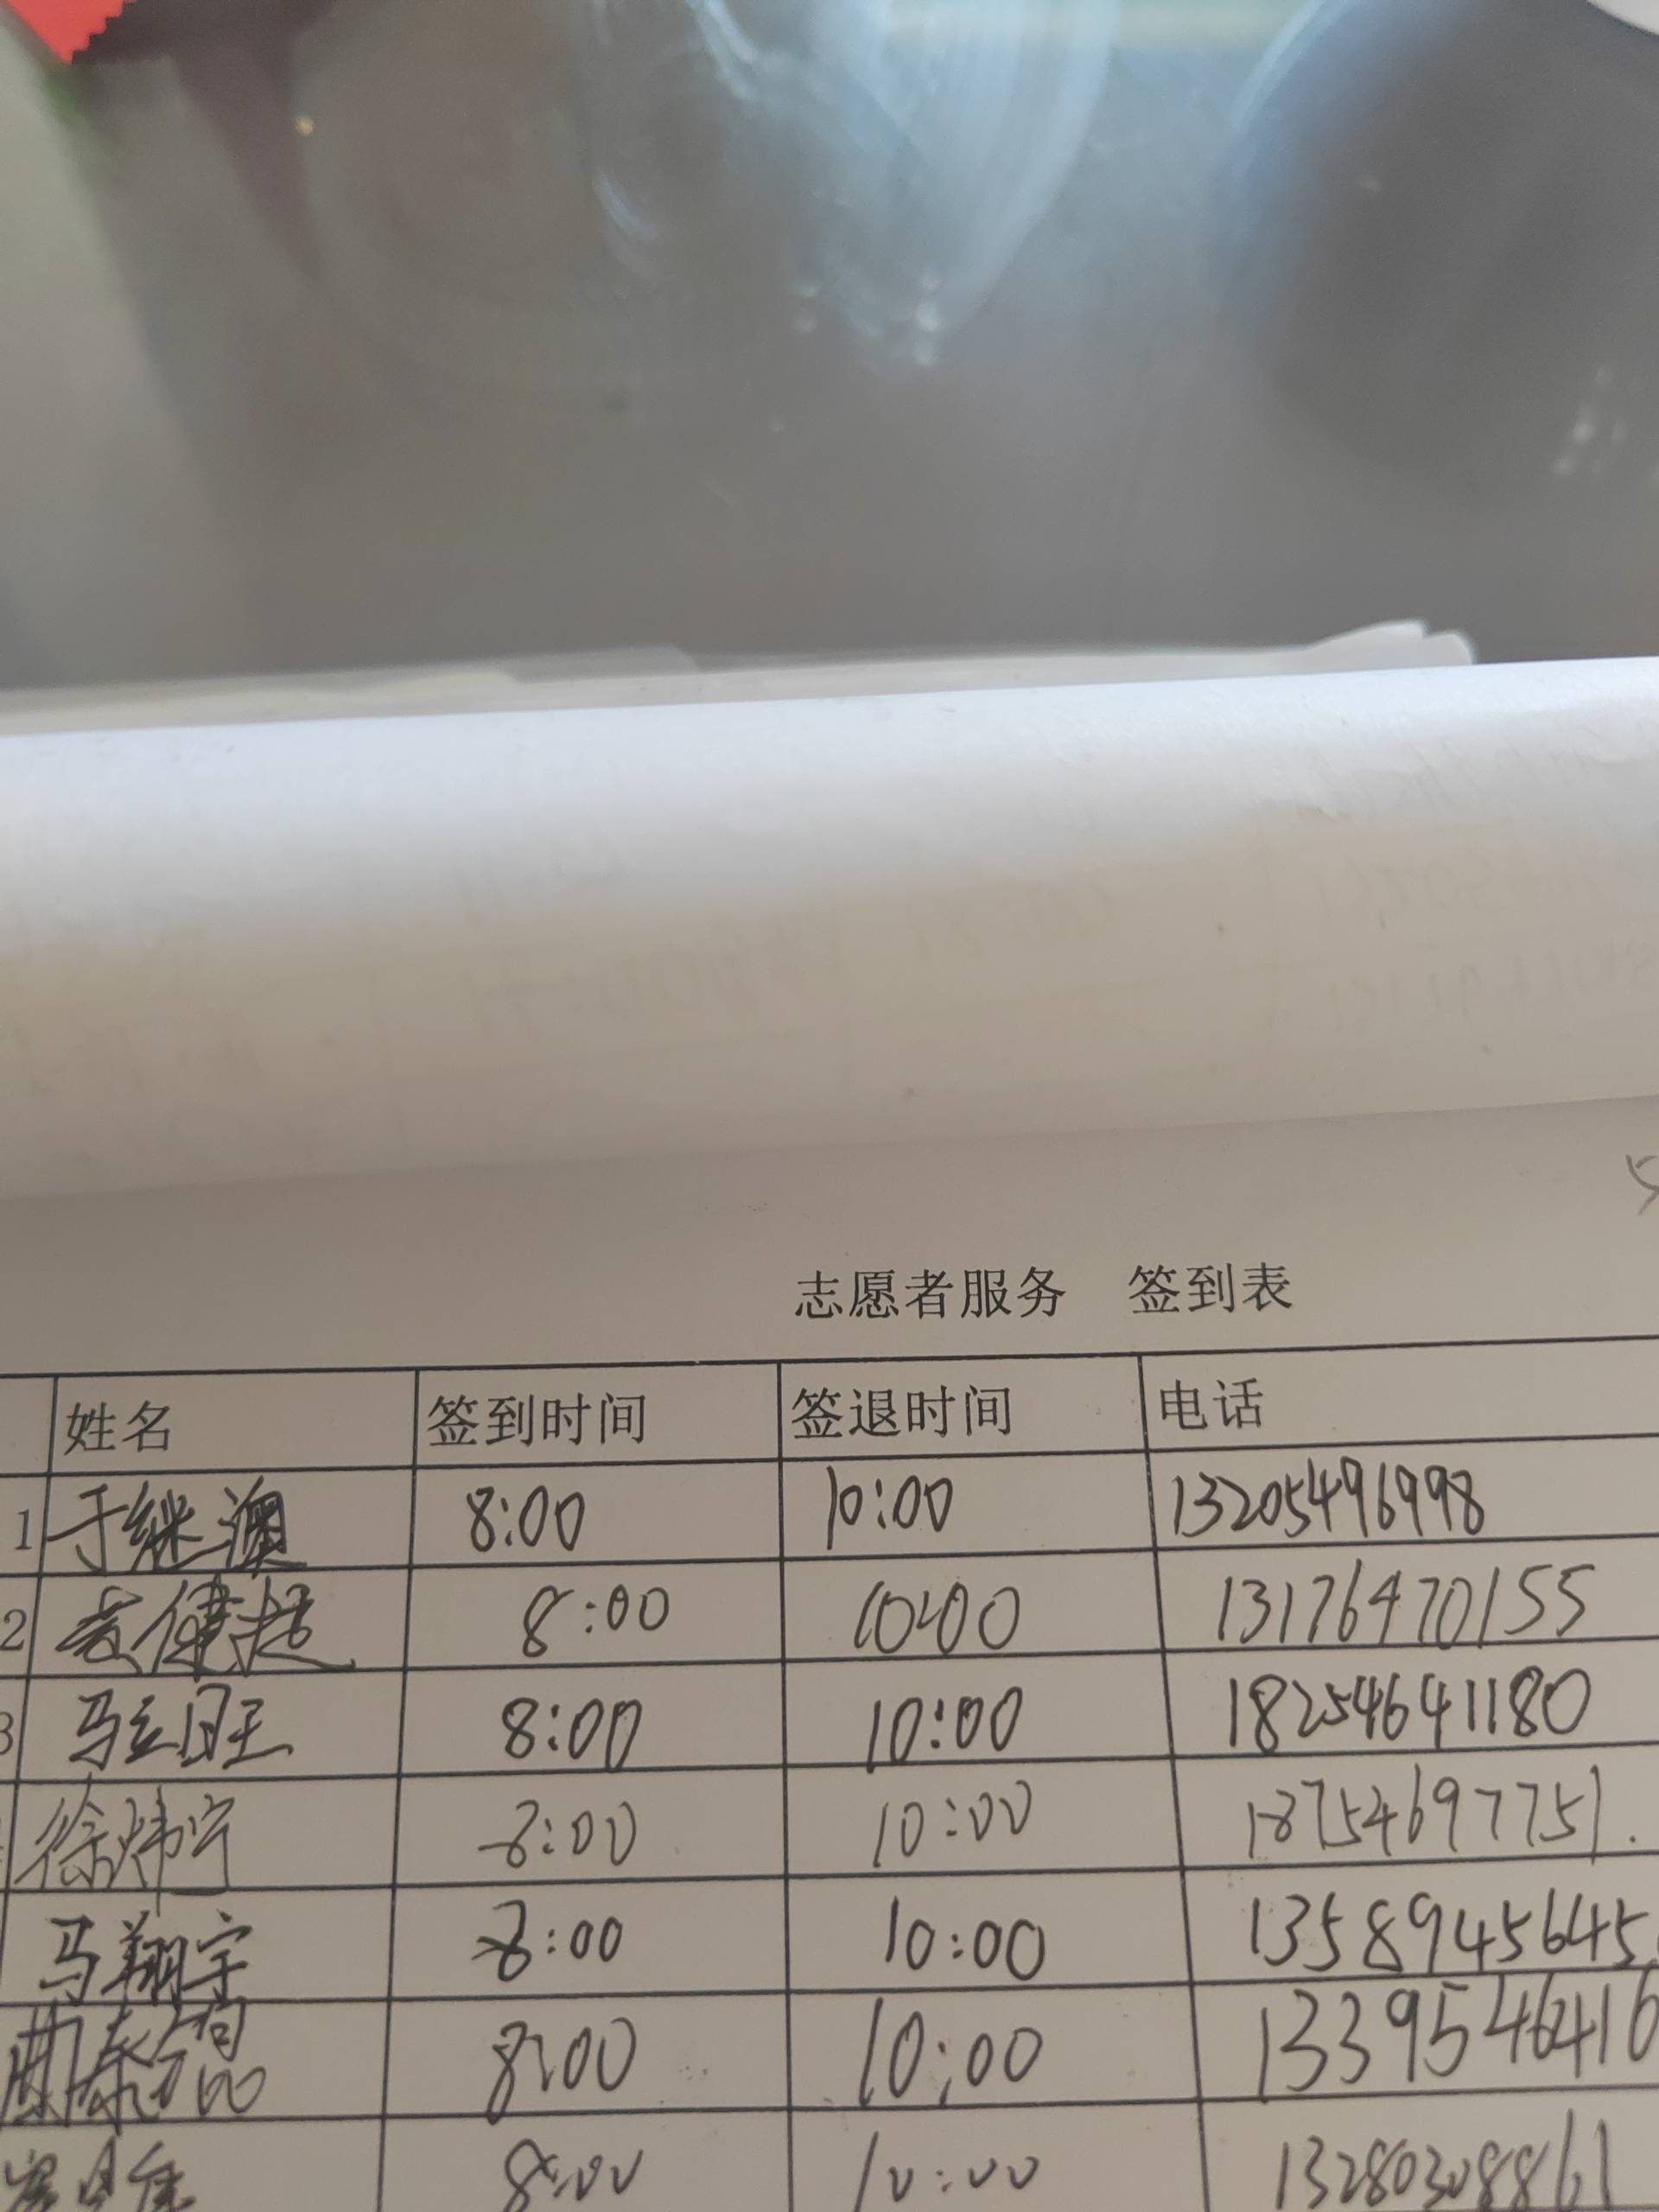 志愿者服务 签到表
姓名 签到时间 签退时间 电话
1 于继澳 8:00 10:00 13205496998
2 8:00 10:00 13176470155
3 马 旺 8:00 10:00 18254641180
徐炜宁 8:00 10:00 18754697751.
马翔宇 8:00 10:00 1358945645
曲泰 8:00 10:00 1339546416
8:00 10:00 13280308861